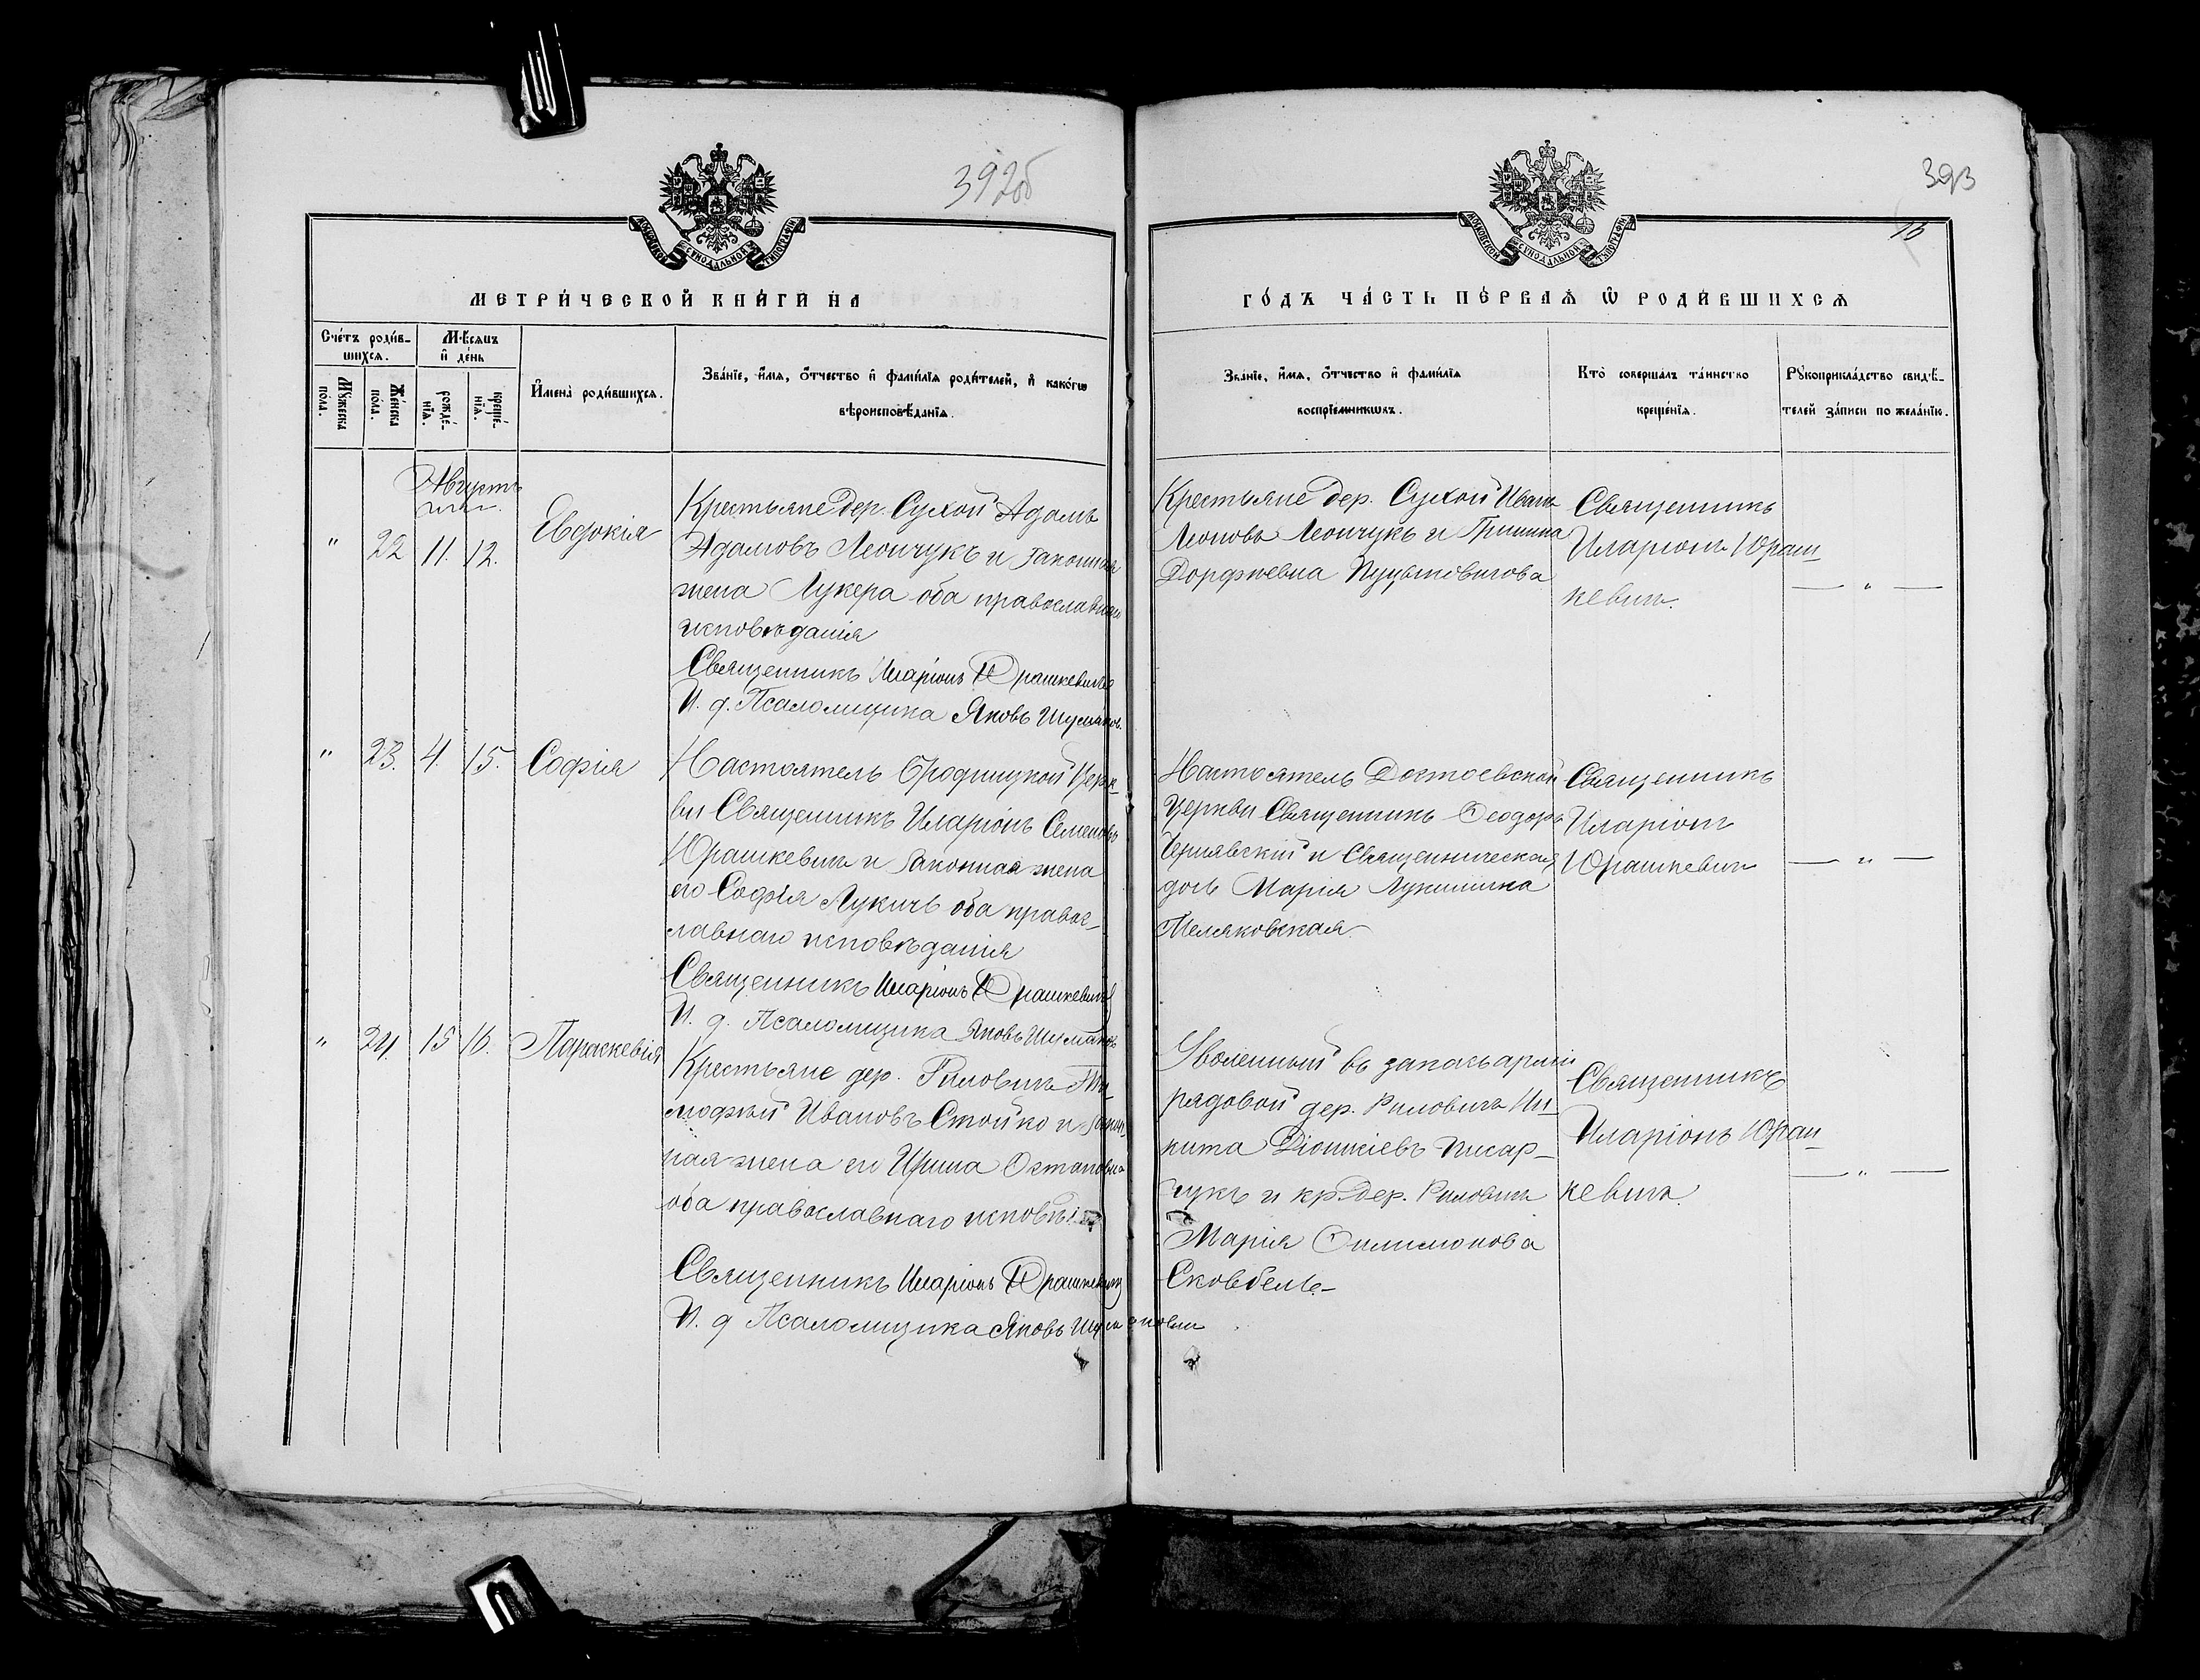 392об
МЕТРИ́ЧЕСКОЙ КНИ́ГИ НА
Сче́тъ роди́в-
шихсѧ.
Мѣ́сѧцъ
и҆ де́нь
Мꙋ́жеска
по́ла.
Же́нска
по́ла.
рожде́-
нїѧ.
креще́-
нїѧ.
И҆мена̀ роди́вшихсѧ.
Зва́нїе, и҆́мѧ, ѻ҆́тчество и҆ фами́лїѧ роди́телей, и҆ како́гѡ
вѣроисповѣ́данїѧ.
Августъ
" 22 11. 12.
Евдокія
Крестьяне дер. Сухой Адамъ
Адамовъ Леончукъ и законная
жена Лукера оба православнаго
исповѣданія
Священникъ Иларіонъ Юрашкевичъ
И. д. Псаломщика Яковъ
" 23. 4. 15.
Софія
Настоятель Бродницкой Церк-
ви Священникъ Иларіонъ Семеновъ
Юрашкевичъ и законная жена
его Софія Лукичъ оба правос-
лавнаго исповѣданія
Священникъ Иларіонъ Юрашкевичъ
И. д. Псаломщика Яковъ
" 24 15 16.
Параскевія
Крестьяне дер. Риловичъ Ти-
мофѣй Ивановъ Стойко и закон-
ная жена его Ирина Остаповна
оба православнаго исповѣд
Священникъ Иларіонъ Юрашкевичъ
И. д. Псаломщика Яковъ
393
16
ГО́ДЪ ЧА́СТЬ ПЕ́РВАѦ Ѡ҆ РОДИ́ВШИХСѦ
Зва́нїе, и҆́мѧ, ѻ҆́тчество и҆ фами́лїѧ
воспрїе́мникѡвъ.
Кто̀ соверша́лъ та́инство
креще́нїѧ.
Рꙋкоприкла́дство свидѣ́-
телей за́писи по жела́нїю.
Крестьяне дер. Сухой Иванъ
Леоновъ Леончукъ и
Дорофѣевна
Священникъ
Иларіонъ Юраш-
кевичъ.
— " —
Настоятель Достоевской
Церкви Священникъ Ѳеодоръ
Чернявскій и Священническая
дочь Марія Лукинична
Священникъ
Иларіонъ
Юрашкевичъ
— " —
Уволенный въ запасъ арміи
рядовой дер. Риловичъ Ни-
кита Діонисіевъ Писар-
чукъ и кр. дер. Риловичъ
Марія Филимонова
Сковбель-
Священникъ
Иларіонъ Юраш-
кевичъ
— " —